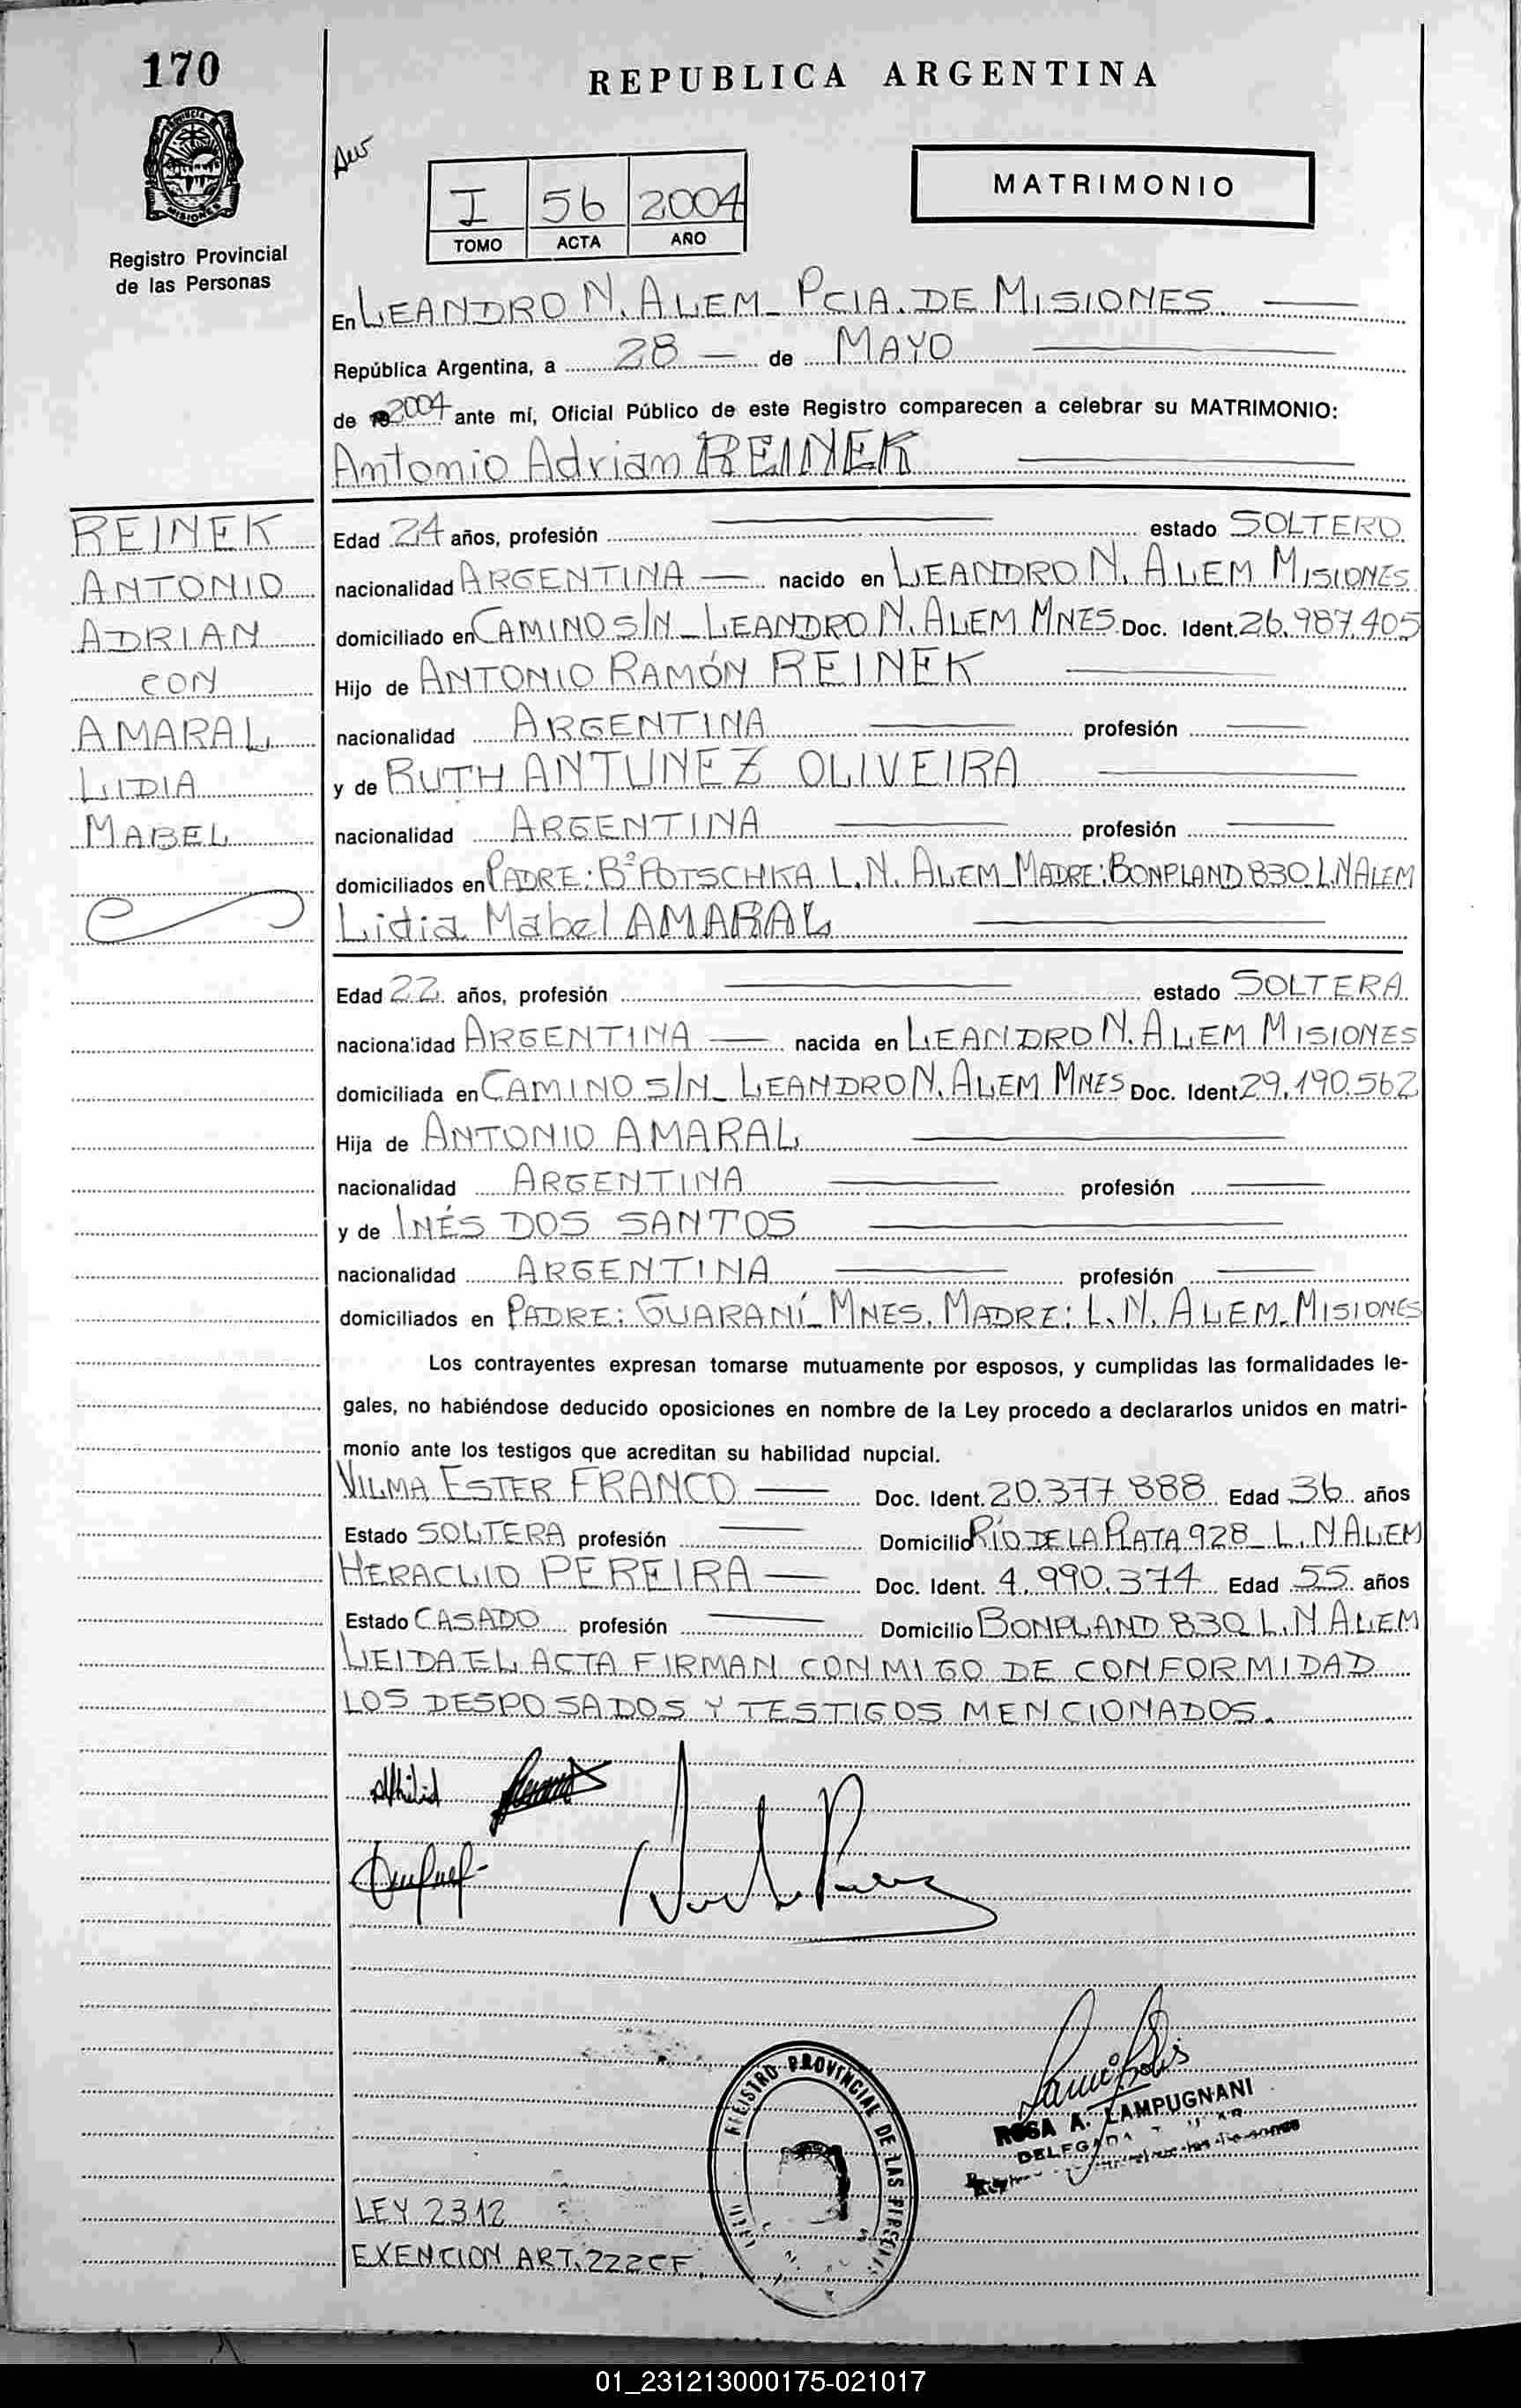 170
REPUBLICA ARGENTINA
PROVINCIA DE MISIONES
Registro Provincial
de las Personas
I 56 2004
TOMO ACTA AÑO
MATRIMONIO
En LEANDRO N. ALEM - PCIA. DE MISIONES
República Argentina, a 28 de MAYO
de 2004 ante mí, Oficial Público de este Registro comparecen a celebrar su MATRIMONIO:
Antonio Adrian REINEK
REINEK
ANTONIO
ADRIAN
CON
AMARAL
LIDIA
MABEL
Edad 24 años, profesión estado SOLTERO
nacionalidad ARGENTINA nacido en LEANDRO N. ALEM MISIONES
domiciliado en CAMINO S/N - LEANDRO N. ALEM MNES. Doc. Ident. 26.987.405
Hijo de ANTONIO RAMÓN REINEK
nacionalidad ARGENTINA profesión
y de RUTH ANTUNEZ OLIVEIRA
nacionalidad ARGENTINA profesión
domiciliados en PADRE: Bº POTSCHKA L.N. ALEM MADRE: BONPLAND 830 L.N ALEM
Lidia Mabel AMARAL
Edad 22 años, profesión estado SOLTERA
nacionalidad ARGENTINA nacida en LEANDRO N. ALEM MISIONES
domiciliada en CAMINO S/N - LEANDRO N. ALEM MNES Doc. Ident. 29.190.562
Hija de ANTONIO AMARAL
nacionalidad ARGENTINA profesión
y de INÉS DOS SANTOS
nacionalidad ARGENTINA profesión
domiciliados en PADRE: GUARANÍ - MNES. MADRE: L.N. ALEM - MISIONES
Los contrayentes expresan tomarse mutuamente por esposos, y cumplidas las formalidades le-
gales, no habiéndose deducido oposiciones en nombre de la Ley procedo a declararlos unidos en matri-
monio ante los testigos que acreditan su habilidad nupcial.
VILMA ESTER FRANCO Doc. Ident. 20.377.888 Edad 36 años
Estado SOLTERA profesión Domicilio RÍO DE LA PLATA 928 - L.N ALEM
HERACLIO PEREIRA Doc. Ident. 4.990.374 Edad 55 años
Estado CASADO profesión Domicilio BONPLAND 830 L.N ALEM
LEIDA EL ACTA FIRMAN CONMIGO DE CONFORMIDAD
LOS DESPOSADOS Y TESTIGOS MENCIONADOS.
REGISTRO PROVINCIAL DE LAS
ROSA A. LAMPUGNANI
DELEGADA
LEY 2312
EXENCION ART. 222 CF.
01_231213000175-021017